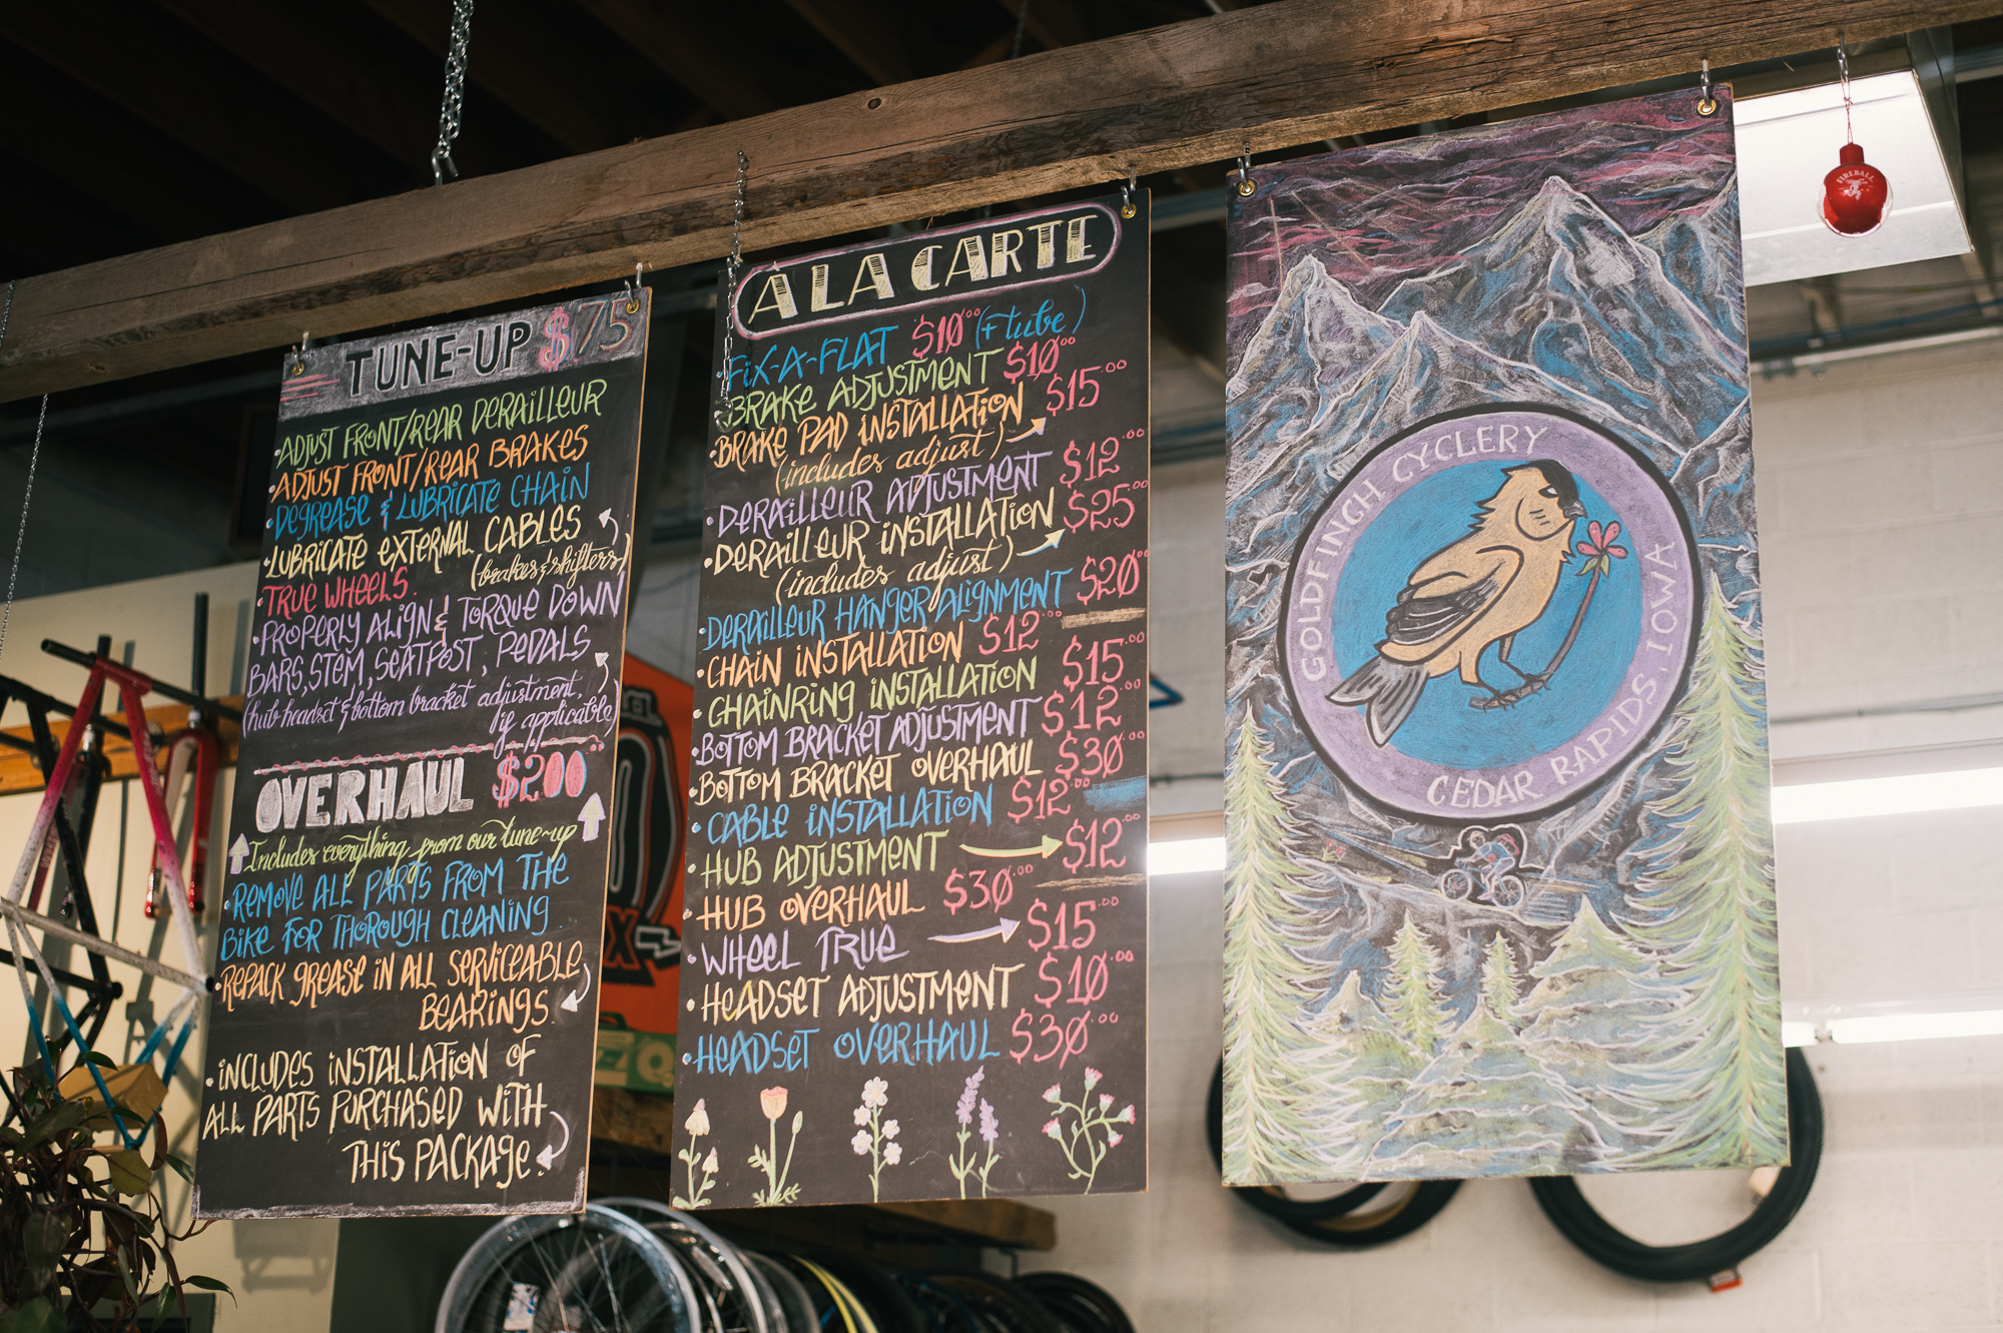 TUNE-UP $75
•ADJUST FRONT/REAR DERAILLEUR
•ADJUST FRONT/REAR BRAKES
•DEGREASE & LUBRICATE CHAIN
•LUBRICATE EXTERNAL CABLES
(brakes & shifters)
•TRUE WHEELS.
•PROPERLY ALIGN & TORQUE DOWN
BARS, STEM, SEATPOST, PEDALS
(hub headset & bottom bracket adjustment,
if applicable)
OVERHAUL $200.00
Includes everything from our tune-up
•REMOVE ALL PARTS FROM THE
BIKE FOR THOROUGH CLEANING.
•REPACK GREASE IN ALL SERVICEABLE
BEARINGS.
•INCLUDES INSTALLATION OF
ALL PARTS PURCHASED WITH
THIS PACKAGE.
A LA CARTE
•FIX-A-FLAT $10.00 (+ tube)
•BRAKE ADJUSTMENT $10.00
•BRAKE PAD INSTALLATION $15.00
(includes adjust)
•DERAILLEUR ADJUSTMENT $12.00
•DERAILLEUR INSTALLATION $25.00
(includes adjust)
•DERAILLEUR HANGER ALIGNMENT $20.00
•CHAIN INSTALLATION $12.00
•CHAINRING INSTALLATION $15.00
•BOTTOM BRACKET ADJUSTMENT $12.00
•BOTTOM BRACKET OVERHAUL $30.00
•CABLE INSTALLATION $12.00
•HUB ADJUSTMENT $12.00
•HUB OVERHAUL $30.00
•WHEEL TRUE $15.00
•HEADSET ADJUSTMENT $10.00
•HEADSET OVERHAUL $30.00
GOLDFINCH CYCLERY
CEDAR RAPIDS, IOWA
FIREBALL